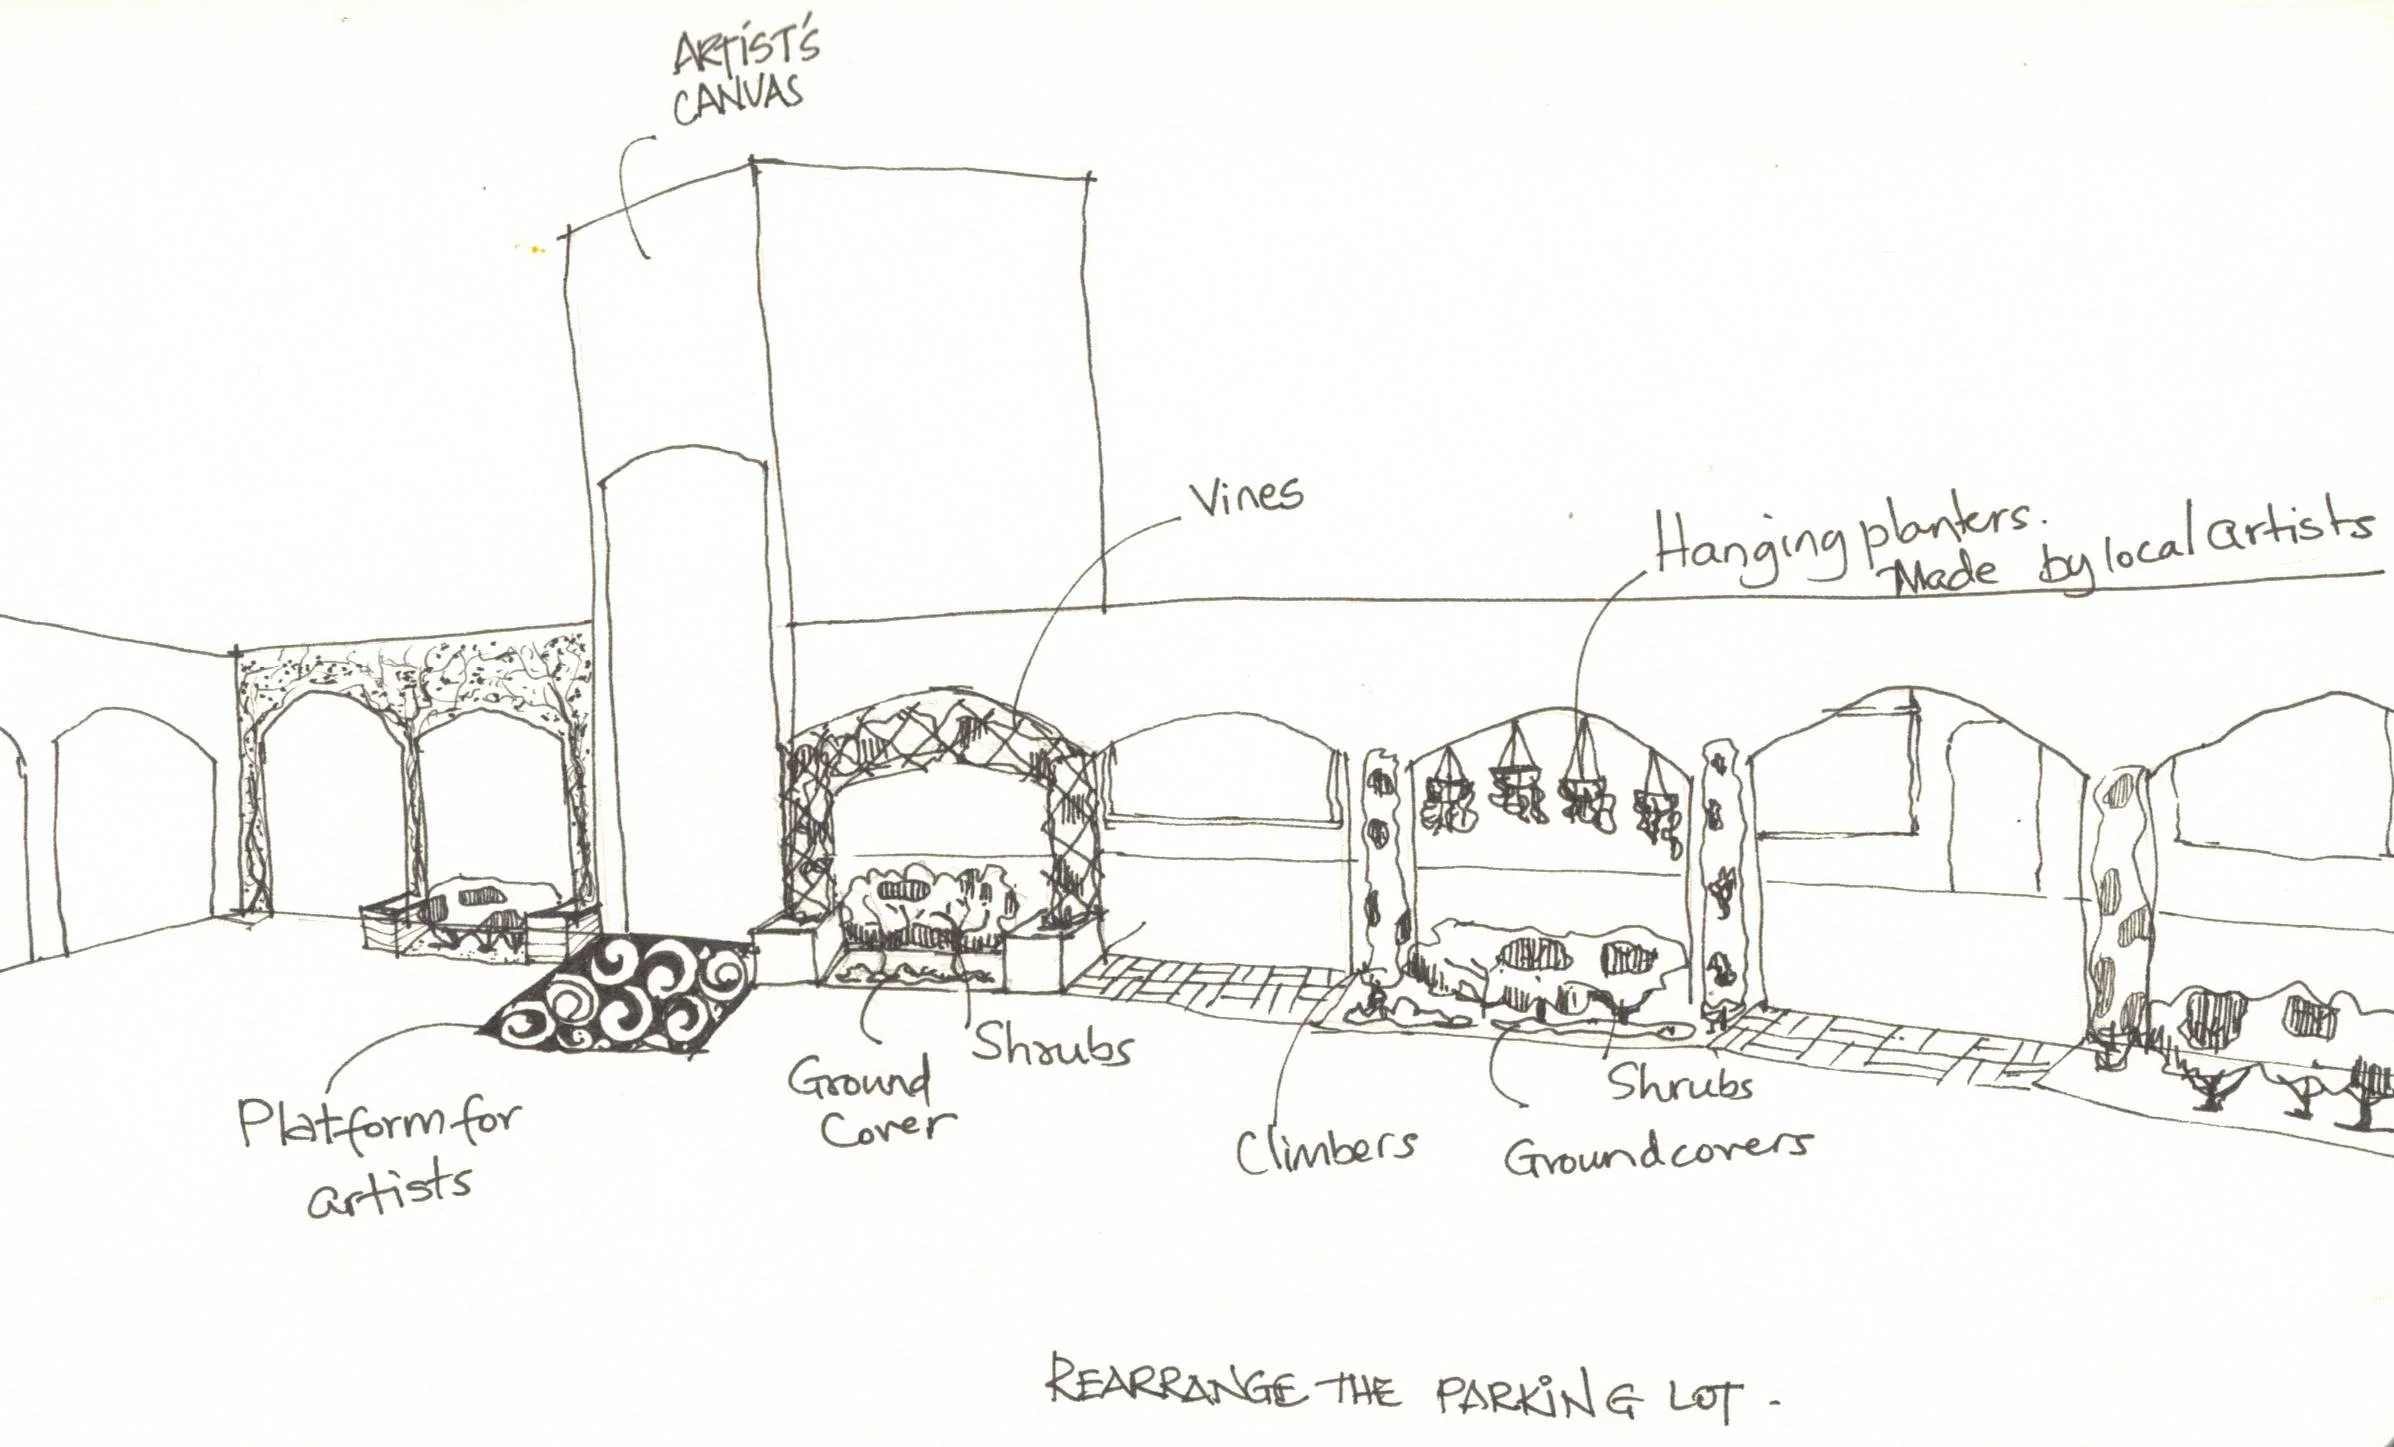 ARTIST'S
CANVAS
Vines
Hanging planters.
Made by local artists
Platform for
artists
Ground
Cover
Shrubs
Climbers
Shrubs
Groundcovers
REARRANGE THE PARKING LOT.